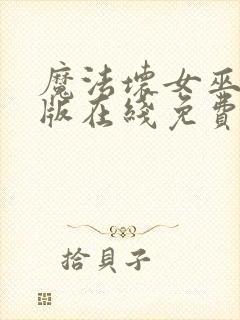 魔法壞女巫
版在綫免費
拾貝子